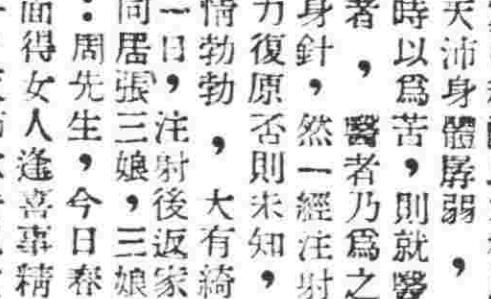 天沛身體孱弱，
時以爲苦，則就醫
者，醫者乃爲之
身針，然一經注射
力復原否則未知，
情勃勃，大有綺
一日，注射後返家
同居張三娘，三娘
：周先生，今日春
面得女人逢喜事精